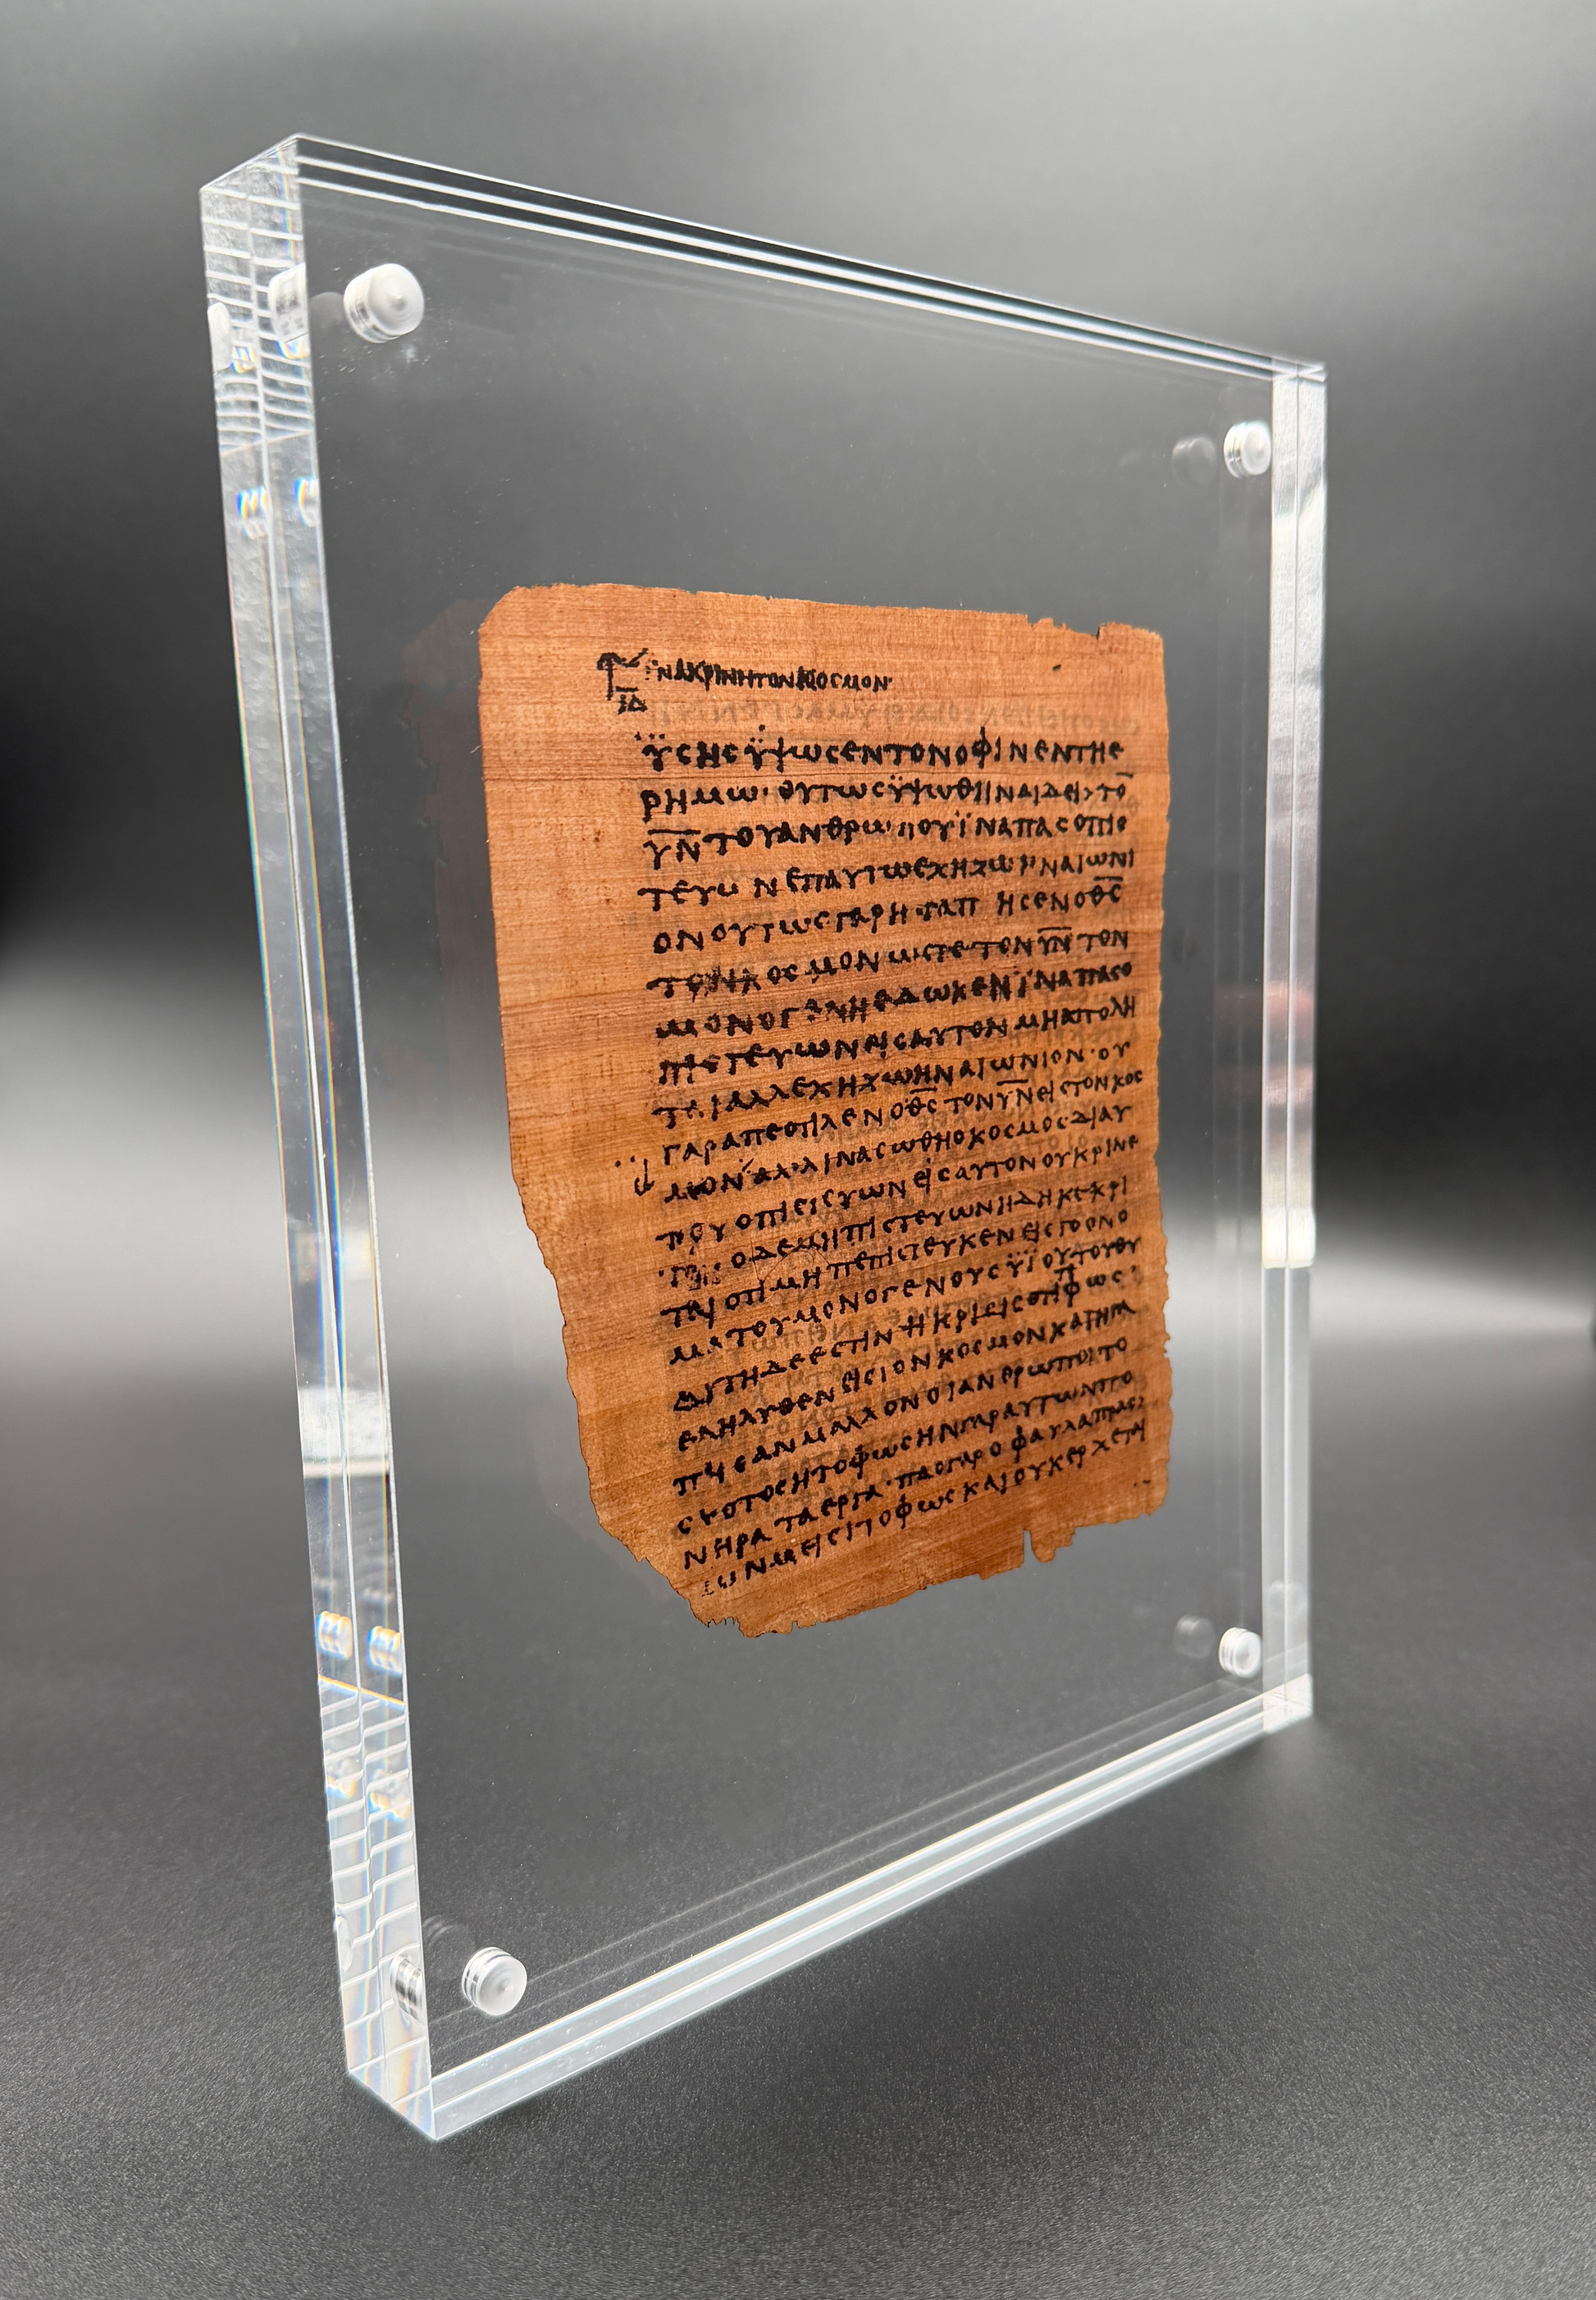 ΪΝΑΚΡΙΝΗΤΟΝΚΟCΜΟΝ·
ΙΔ
ΫCΗCΫΨΩCΕΝΤΟΝΟΦΙΝΕΝΤΗΕ
ΡΗΜΩ·ΟΥΤΩCΫΨΩΘΗΝΑΙΔΕΙ>ΤΟ̅
Υ̅Ν̅ΤΟΥΑΝΘΡΩΠΟΥΪΝΑΠΑCΟΠΙC
ΤΕΥΩΝΕΠΑΥΤΩΕΧΗΖΩΗΝΑΙΩΝΙ
ΟΝΟΥΤΩCΓΑΡΗΓΑΠΗCΕΝΟΘ̅C̅
ΤΟΝΚΟCΜΟΝΩCΤΕΤΟΝΥ̅Ν̅ΤΟΝ
ΜΟΝΟΓΕΝΗΕΔΩΚΕΝΪΝΑΠΑCΟ
ΠΙCΤΕΥΩΝΕΙCΑΥΤΟΝΜΗΑΠΟΛΗ
ΤΑΙΑΛΛΕΧΗΖΩΗΝΑΙΩΝΙΟΝ·ΟΥ
ΓΑΡΑΠΕCΤΙΛΕΝΟΘ̅C̅ΤΟΝΥ̅Ν̅ΕΙCΤΟΝΚΟC
ΜΟΝ ΑΛΛΙΝΑCΩΘΗΟΚΟCΜΟCΔΙΑΥ
ΤΟΥΟΠΙCΤΕΥΩΝΕΙCΑΥΤΟΝΟΥΚΡΙΝΕ
ΟΔΕΜΗΠΙCΤΕΥΩΝΗΔΗΚΕΚΡΙ
ΤΑΙΟΤΙΜΗΠΕΠΙCΤΕΥΚΕΝΕΙCΤΟΟΝΟ
ΜΑΤΟΥΜΟΝΟΓΕΝΟΥCΫΙΟΥΤΟΥΘΥ
ΑΥΤΗΔΕΕCΤΙΝΗΚΡΙCΙCΟΤΙΤΟΦΩC·
ΕΛΗΛΥΘΕΝΕΙCΤΟΝΚΟCΜΟΝΚΑΙΗΓΑ
ΠΗCΑΝΜΑΛΛΟΝΟΙΑΝΘΡΩΠΟΙΤΟ
CΚΟΤΟCΗΤΟΦΩCΗΝΓΑΡΑΥΤΩΝΠΟ
ΝΗΡΑΤΑΕΡΓΑ·ΠΑCΓΑΡΟΦΑΥΛΑΠΡΑC>
CΩΝΜΕΙCΙΤΟΦΩCΚΑΙΟΥΚΕΡΧΕΤΑΙ